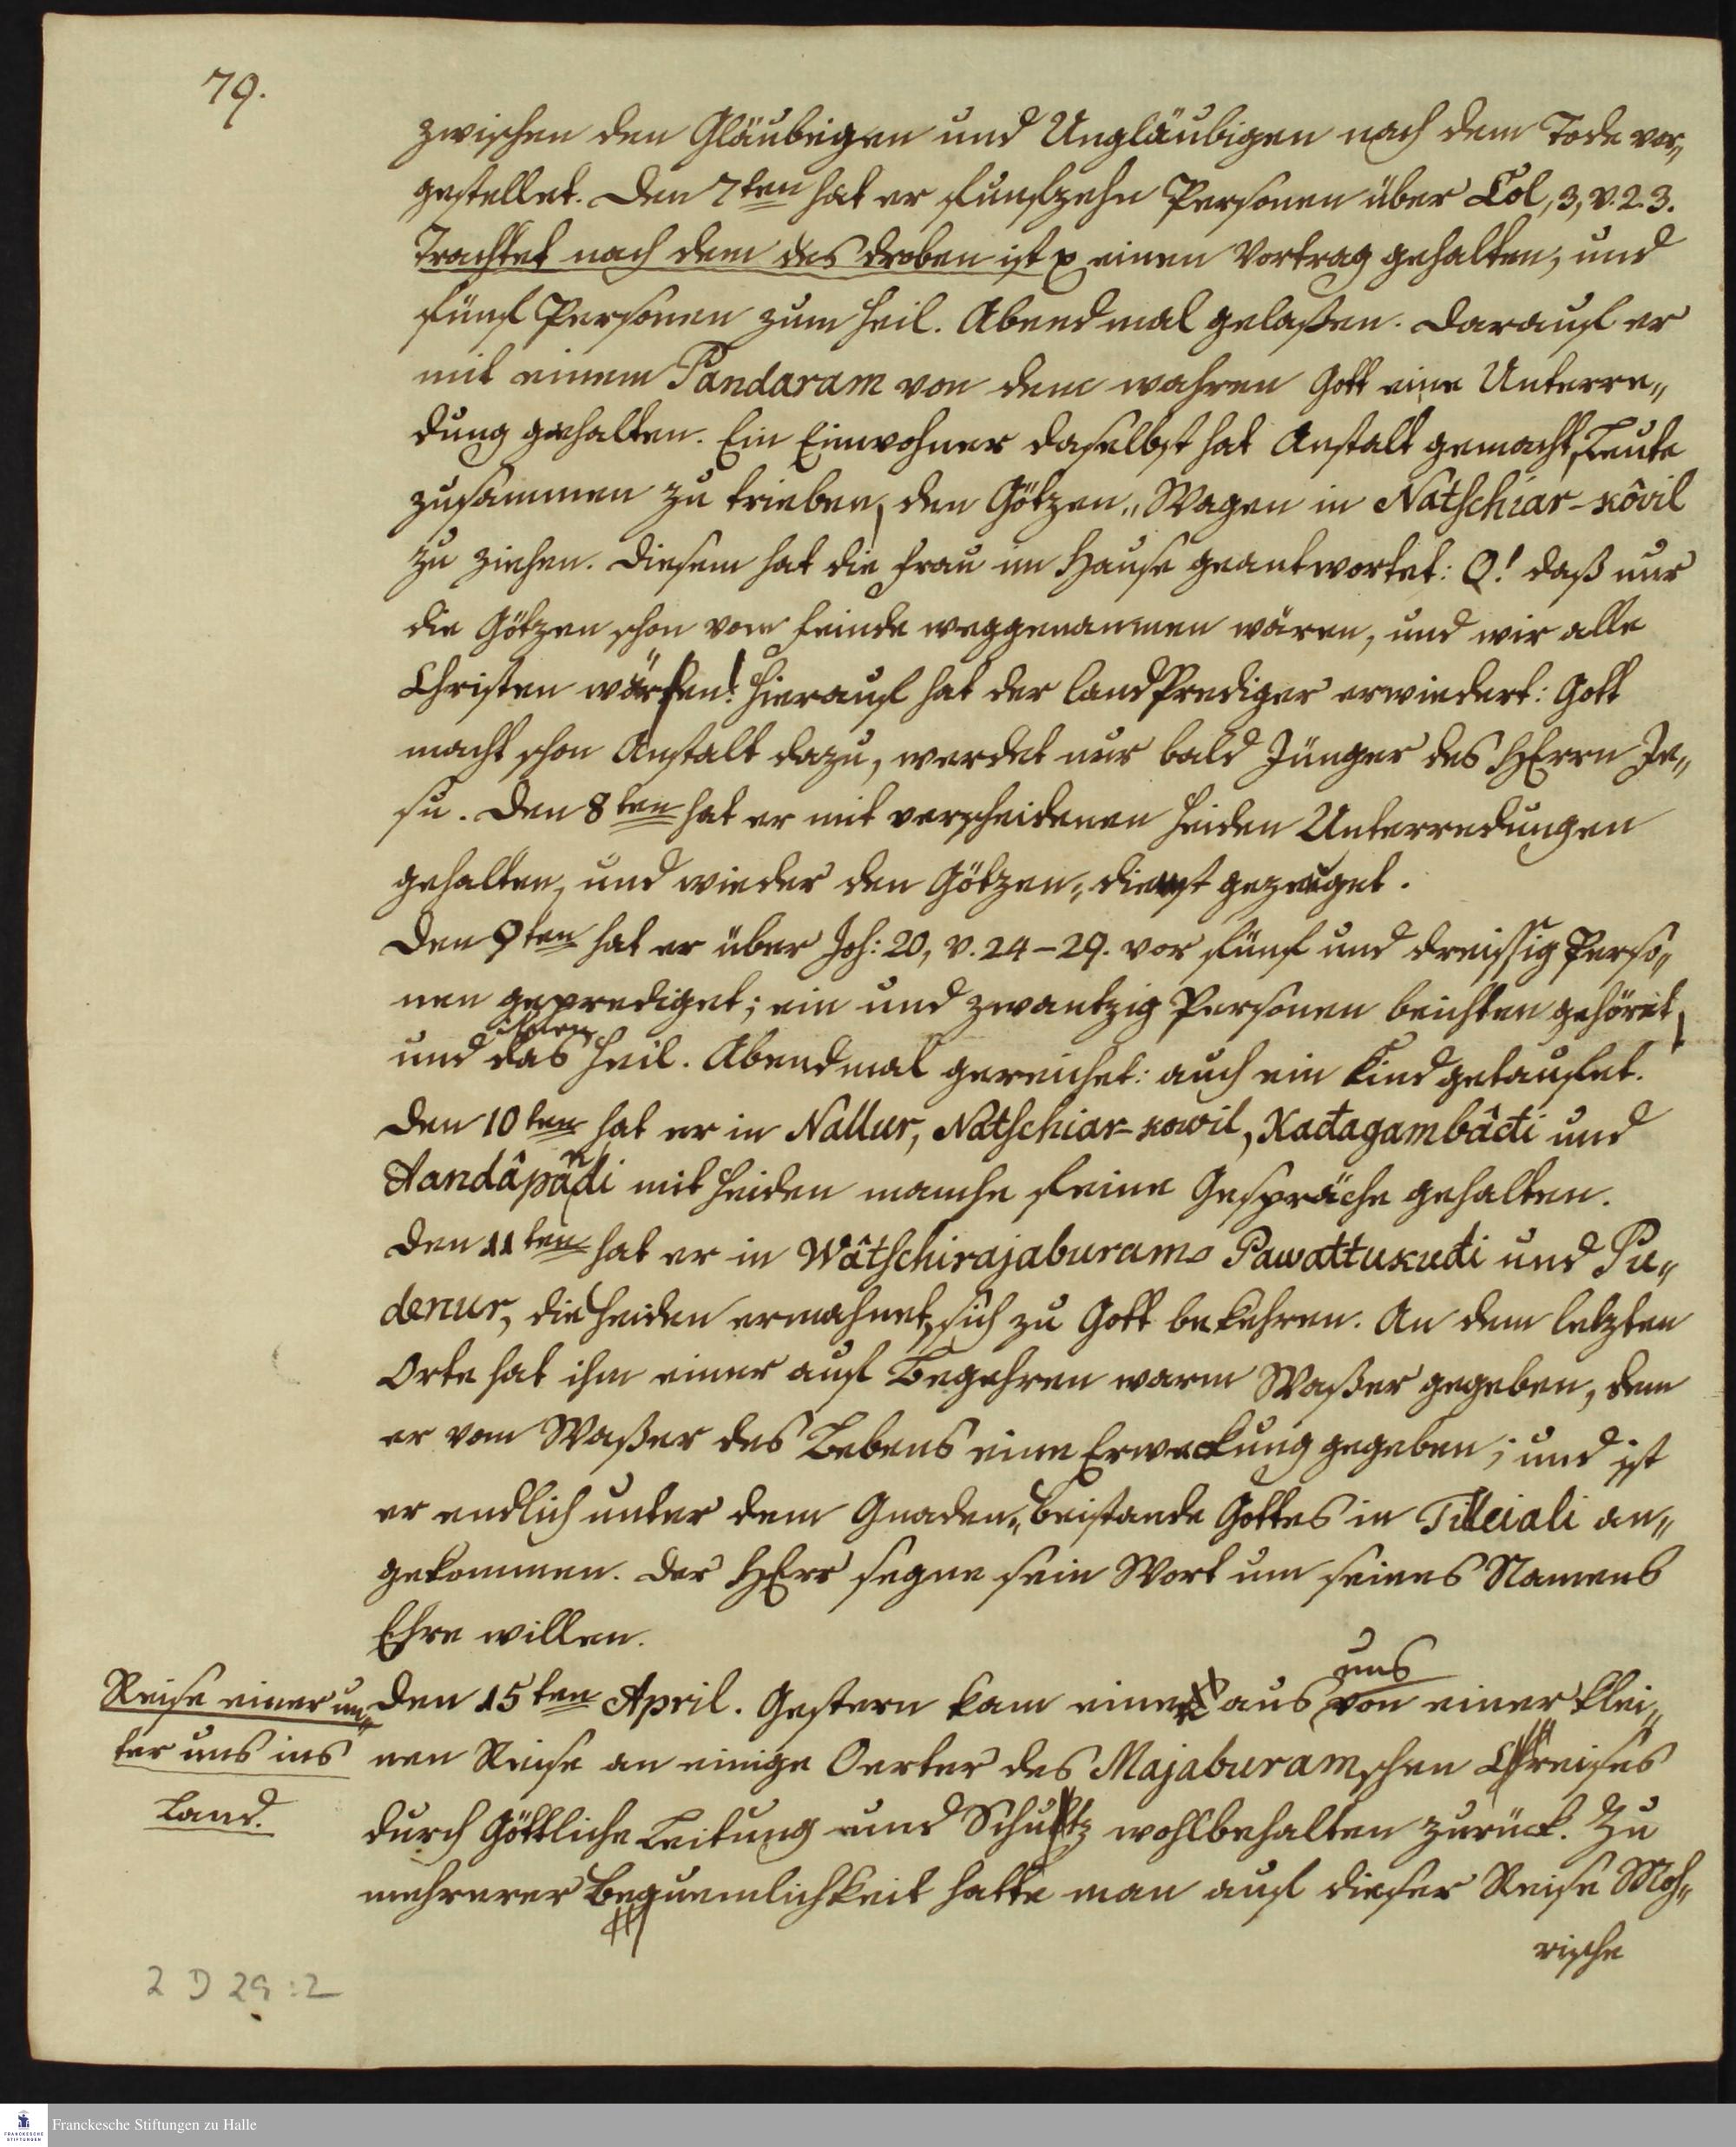 79.
zwischen den Gläubigen und Ungläubigen nach dem Tode vor„
gestellet. Den 7ten hat er funfzehn Personen über Col, 3, v. 2. 3.
Trachtet nach dem das droben ist p einen Vortrag gehalten, und
fünf Personen zum heil. Abendmal gelaßen. Darauf er
mit einem Pandaram von dem wahren Gott eine Unterre„
dung gehalten. Ein Einwohner daselbst hat Anstalt gemacht, Leute
zusammen zu trieben, den Götzen„Wagen in Natschiar-kôvil
zu ziehen. Diesem hat die Frau im Hause geantwortet: O! daß nur
die Götzen schon vom Feinde weggenommen wären, und wir alle
Christen wären! Hierauf hat der Landprediger erwiedert: Gott
macht schon Anstalt dazu, werdet nur bald Jünger des HErrn Je„
su. Den 8ten hat er mit verscheidenen Heiden Unterredungen
gehalten, und wieder den Götzen„dienst gezeuget.
Den 9ten hat er über Joh: 20, v. 24-29. vor fünf und dreissig Perso„
nen geprediget; ein und zwantzig Personen beichten gehöret,
ihnen
und das heil. Abendmal gereichet: auch ein Kind getaufet.
Den 10ten hat er in Nallur, Natschiar-kowil, Kadagambâdi und
Aandâpândi mit Heiden manche feine Gespräche gehalten.
Den 11ten hat er in Wâtschirajaburam, Pawattukudi und Pu„
denur, die Heiden ermahnet, sich zu Gott bekehren. An dem letzten
Orte hat ihm einer auf Begehren warm Waßer gegeben, dem
er vom Waßer des Lebens eine Erweckung gegeben; und ist
er endlich unter dem Gnaden„beistande Gottes in Tilleiali an„
gekommen. Der HErr segne sein Wort um seines Namens
Ehre willen.
Reise einer un„
ter uns ins
Land.
uns
Den 15ten April. Gestern kam einer aus von einer klei„
nen Reise an einige Oerter des Majaburamschen Creises
durch Göttliche Leitung und Schutz wohlbehalten zurück. Zu
mehrerer Bequemlichkeit hatte man auf dieser Reise Moh„
rische
2 D 29:2
Franckesche Stiftungen zu Halle
FRANCKESCHE STIFTUNGEN